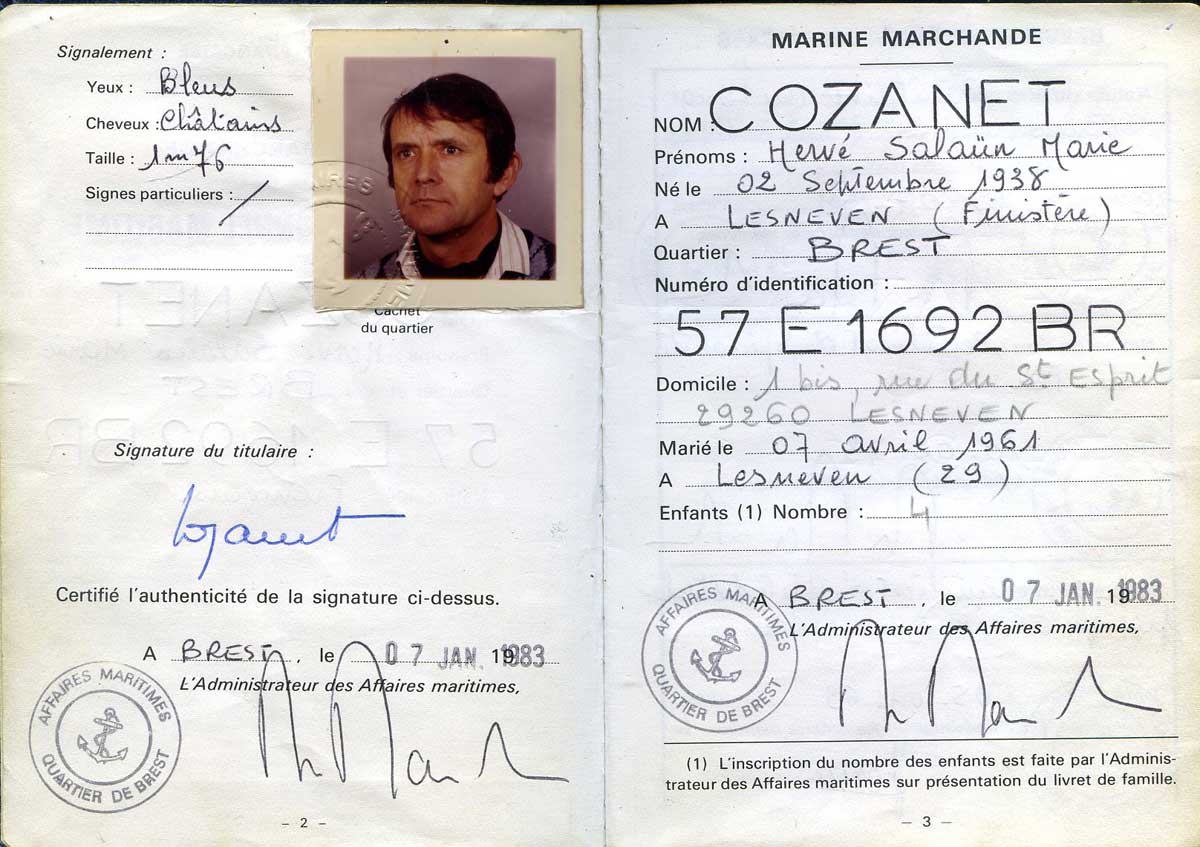 Signalement :
Yeux : Bleus
Cheveux : Châtains
Taille : 1m76
Signes particuliers : /
Cachet
du quartier
Signature du titulaire :
Cozanet
Certifié l'authenticité de la signature ci-dessus.
A BREST, le 07 JAN. 1983
L'Administrateur des Affaires maritimes,
AFFAIRES MARITIMES
QUARTIER DE BREST
- 2 -
MARINE MARCHANDE
NOM : COZANET
Prénoms : Hervé Salaün Marie
Né le 02 Septembre 1938
A LESNEVEN (Finistère)
Quartier : BREST
Numéro d'identification :
57 E 1692 BR
Domicile : 1 bis, rue du St Esprit
29260 LESNEVEN
Marié le 07 avril 1961
A Lesneven (29)
Enfants (1) Nombre : 4
A BREST, le 07 JAN. 1983
L'Administrateur des Affaires maritimes,
AFFAIRES MARITIMES
QUARTIER DE BREST
(1) L'inscription du nombre des enfants est faite par l'Adminis-
trateur des Affaires maritimes sur présentation du livret de famille.
- 3 -